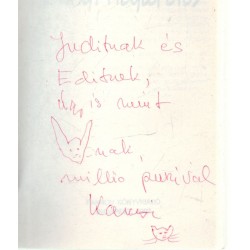 Juditnak és
Editnek,
is mint
nak,
millio puszival